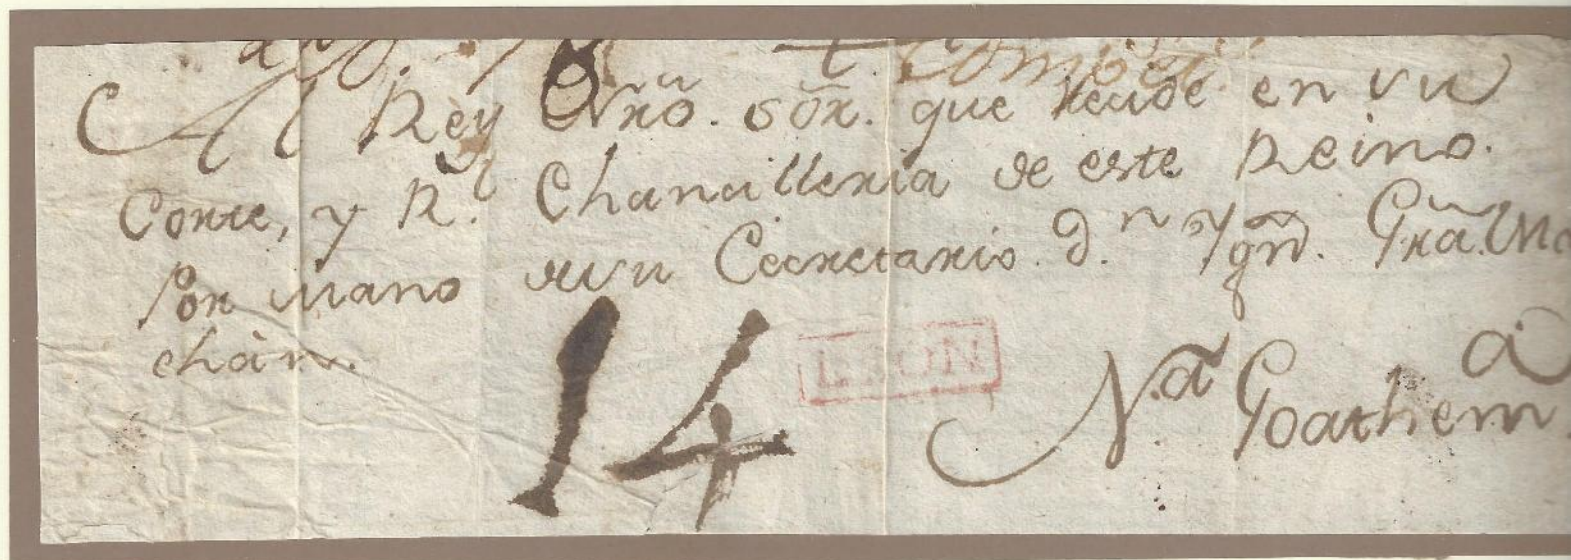 Al Rey Nrō. Sōr. que recide en su
Corte, y R.l Chancilleria de este Reino.
Por mano de su Cecretario D.n Ygn.o Grã. Ma
chàn.
14
LEON
N.a Goathem.a